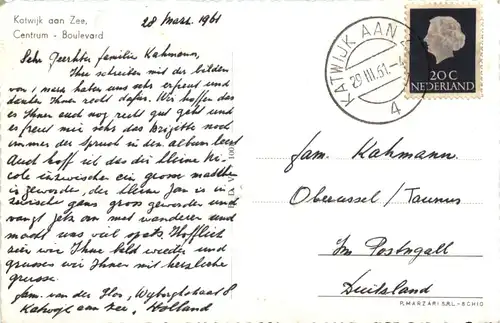 Katwijk aan Zee,
Centrum - Boulevard
28 Maart 1961
Sehr Geerhter familie Kahmann,
Ihre schreiben mit die bilden
von 1 mars haben uns sehr erfreut und
danken Ihnen recht dafur. Wir hoffen das
es Ihnen auch recht gut geht und
erfreut mir sehr das Brigitte noch
immer der Spruch in den album liest
Auch hoff ich das die kleine Ni-
cole inzwischen ein grosse mädchen
is geworden, der kleine Jan is in-
zwischen ganz gross geworden und
vangt jetz an met wanderen und
macht uns viel spats. Hofflich
wir Ihne bald wieder und
grussen wir Ihnen mit herzliche
grusse.
fam. van der Plos, Wyborghstraat 8
Katwijk aan Zee, Holland
KATWIJK AAN
29 III.61
4
20 C
NEDERLAND
fam. Kahmann.
Oberursel / Taunus
Im Portugall
Duitsland
P. MARZARI S.R.L. - SCHIO